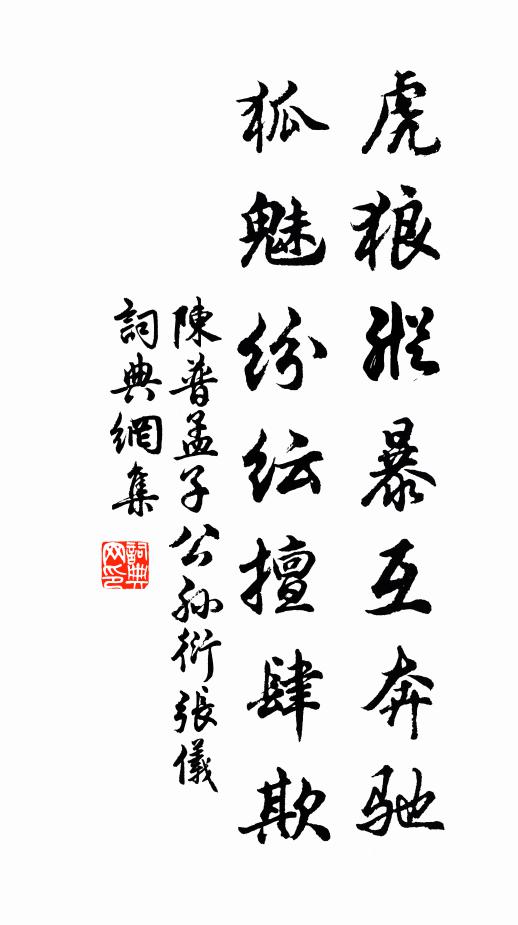 虎狼縱暴互奔馳
狐魅紛纭擅肆欺
陳普孟子公孙衍張儀
詞典網集
詞典网印